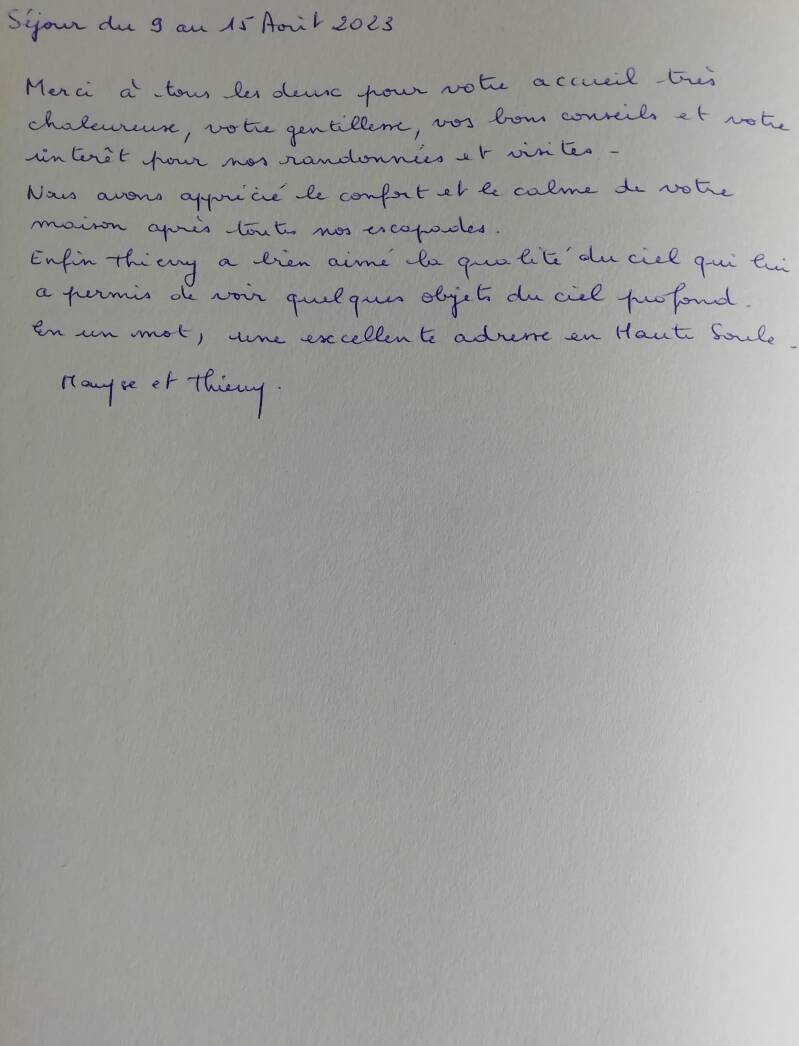 Séjour du 9 au 15 Août 2023
Merci à tous les deux pour votre accueil très
chaleureux, votre gentillesse, vos bons conseils et votre
intérêt pour nos randonnées et visites -
Nous avons apprécié le confort et le calme de votre
maison après toutes nos escapades.
Enfin Thierry a bien aimé la qualité du ciel qui lui
a permis de voir quelques objets du ciel profond.
En un mot, une excellente adresse en Haute Soule -
Maryse et Thierry.